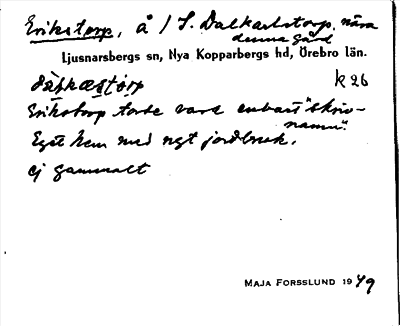 Erikstorp, å / S. Dalkarlstorp, nära
denna gård
Ljusnarsbergs sn, Nya Kopparbergs hd, Örebro län.
k 26
Erikstorp torde vara enbart "skriv-
namn".
Eget hem med ngt jordbruk.
ej gammalt
MAJA FORSSLUND 1949